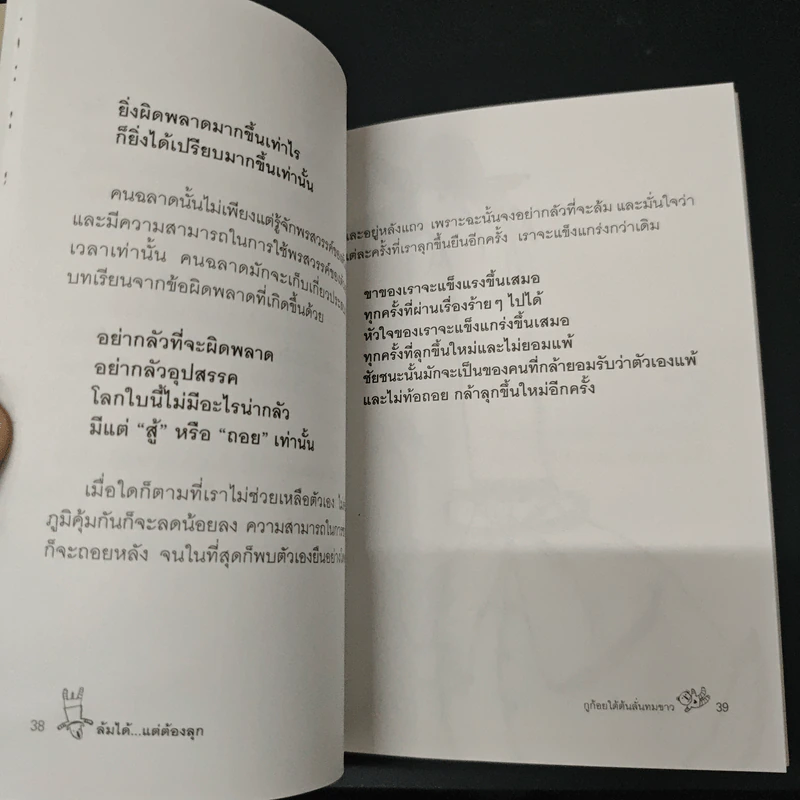 ยิ่งผิดพลาดมากขึ้นเท่าไร
ก็ยิ่งได้เปรียบมากขึ้นเท่านั้น
คนฉลาดนั้นไม่เพียงแต่รู้จักพรสวรรค์ของ
และมีความสามารถในการใช้พรสวรรค์ของ
เวลาเท่านั้น คนฉลาดมักจะเก็บเกี่ยว
บทเรียนจากข้อผิดพลาดที่เกิดขึ้นด้วย
อย่ากลัวที่จะผิดพลาด
อย่ากลัวอุปสรรค
โลกใบนี้ไม่มีอะไรน่ากลัว
มีแต่ “สู้” หรือ “ถอย” เท่านั้น
เมื่อใดก็ตามที่เราไม่ช่วยเหลือตัวเอง
ภูมิคุ้มกันก็จะลดน้อยลง ความสามารถในการ
ก็จะถอยหลัง จนในที่สุดก็พบตัวเองยืนอย่าง
38 ล้มได้...แต่ต้องลุก
และอยู่หลังแถว เพราะฉะนั้นจงอย่ากลัวที่จะล้ม และมั่นใจว่า
แต่ละครั้งที่เราลุกขึ้นยืนอีกครั้ง เราจะแข็งแกร่งกว่าเดิม
ขาของเราจะแข็งแรงขึ้นเสมอ
ทุกครั้งที่ผ่านเรื่องร้ายๆ ไปได้
หัวใจของเราจะแข็งแกร่งขึ้นเสมอ
ทุกครั้งที่ลุกขึ้นใหม่และไม่ยอมแพ้
ชัยชนะนั้นมักจะเป็นของคนที่กล้ายอมรับว่าตัวเองแพ้
และไม่ท้อถอย กล้าลุกขึ้นใหม่อีกครั้ง
ถูก้อยใต้ต้นลั่นทมขาว 39